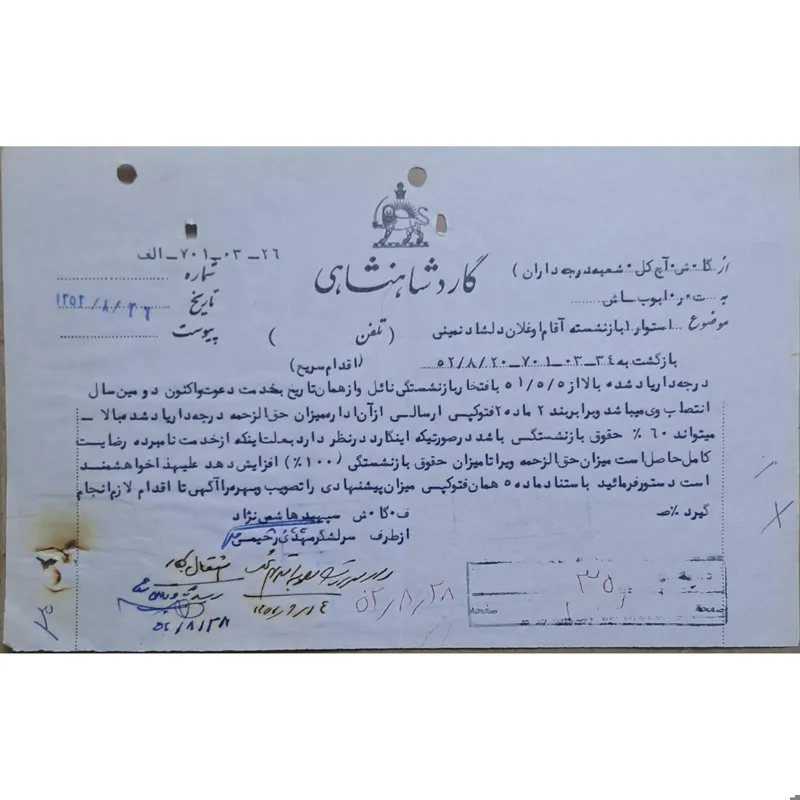 ۲۶ــ ۰۳ــ ۷۰۱ــ الف
گارد شاهنشاهی
از گا٠ش آچ کل٠ شعبه درجه داران)
شماره
به
تاریخ ۱۳۵۲/۸/۲۶
موضوع استوار ۱ بازنشسته آقام اوغلان دلشاد نمینی
(تلفن )
پیوست
بازگشت به ۳۴ــ ۰۳ــ ۷۰۱ــ ۵۲/۸/۲۰
(اقدام سریع)
درجه دار یاد شده بالا از ۵۱/۵/۵ با فتخار بازنشستگی نائل و از همان تاریخ بخدمت دعوت و اکنون دومین سال
انتصاب وی میباشد و برابر بند ۲ ماده ۲ فتوکپی ارسالی از آن اداره میزان حق الزحمه درجه دار یاد شده بالا ــ
میتواند ۶۰ ٪ حقوق بازنشستگی باشد در صورتیکه اینکار در نظر دارد بعلت اینکه از خدمت نامبرده رضایت
کامل حاصل است میزان حق الزحمه ویرا تا میزان حقوق بازنشستگی (۱۰۰٪) افزایش دهد علیهذا خواهشمند
است دستور فرمائید با ستناد ماده ۵ همان فتوکپی میزان پیشنهادی را تصویب و سپرمرا آگهی تا اقدام لازم انجام
گیرد ٪ص
ف گا٠ش سپهبد هاشمی نژاد
از طرف سرلشگر مهدی رحیمی
اشتغال بکار
۵۲/۸/۲۸
۵۲/۸/۲۸
۳۵
صفحه
صفحه